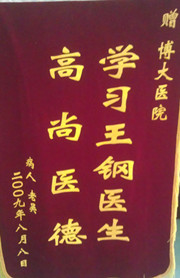 赠 博大医院
学习王钢医生
高尚医德
病人 老吴
二00九年八月八日